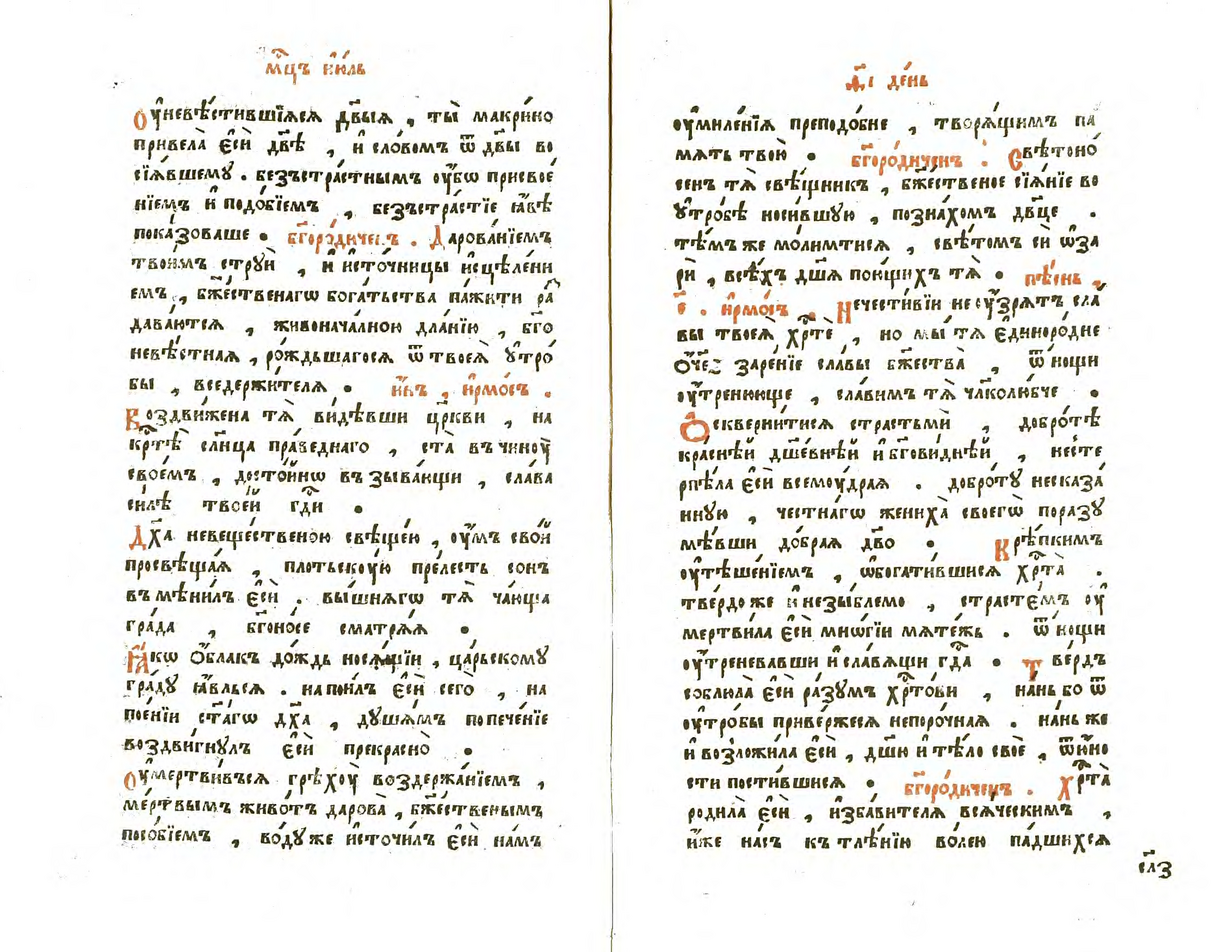 мц҃ъ і҆ю́ль
Оу҆невѣ́стившїѧсѧ дв҃ыѧ , ты̀ макри́но
привела̀ є҆сѝ дв҃ѣ , и҆ сло́вомъ ѿ дв҃ы во
сїѧ́вшемꙋ . безъстра́стнымъ оу҆́бѡ присвое
нїемъ и҆ подо́бїемъ , безъстра́стїе ꙗ҆́вѣ
пока́зоваше . бг҃оро́диченъ . Дарова́нїемъ
твои́мъ струи̑ , и҆ и҆сто́чницы и҆сцѣле́ни
емъ , бж҃е́ственагѡ бога́тьства па́жити ра
дава́ютсѧ , живонача́лною дла́нїю , бг҃о
невѣ́стнаѧ , ро́ждьшагосѧ ѿ твоеѧ̀ ᲂутро́
бы , вседержи́телѧ . и҆́нъ , і҆рмо́съ .
Воздви́жена тѧ̀ ви́дѣвши цр҃кви , на
крⷭ҇тѣ̀ сл҃нца пра́веднаго , ста̀ въ чиноу҆̀
свое́мъ , досто́йнѡ въ зыва́ющи , сла́ва
си́лѣ твое́й гдⷭ҇и .
Дх҃а невеще́ственою свѣще́ю , оу҆́мъ сво́й
просвѣща́ѧ , пло́тьскоую пре́лесть со́нъ
въ мѣни́лъ є҆сѝ . вы́шнѧгѡ тѧ̀ ча́юща
гра́да , бг҃оно́се сматрѧ́ѧ .
Ꙗ҆́кѡ ѻ҆́блакъ до́ждь носѧ́щїи , ца́рьскомꙋ
гра́дꙋ ꙗ҆́вльсѧ . напои́лъ є҆сѝ сего̀ , на
пое́нїи ст҃а́гѡ дх҃а , дꙋша́мъ попече́нїе
воздви́гнꙋлъ є҆сѝ прекра́сно .
Оу҆мертви́въсѧ грѣхоу҆̀ воздержа́нїемъ ,
ме́ртвымъ живо́тъ дарова̀ , бж҃е́ственымъ
посо́бїемъ , во́дꙋ же и҆сточи́лъ є҆сѝ на́мъ
д҃і де́нь
оу҆миле́нїѧ преподо́бне , творѧ́щимъ па́
мѧть твою̀ . бг҃оро́диченъ . Свѣтоно́
сенъ тѧ̀ свѣ́щникъ , бж҃е́ственое сїѧ́нїе во
ᲂутро́бѣ носи́вшую , позна́хомъ дв҃це .
тѣ́мъ же мо́лимтисѧ , свѣ́томъ си̑ ѡ҆за
рѝ , всѣ́хъ дш҃а пою́щихъ тѧ̀ . пѣ́снь ,
е҃ . і҆рмо́съ . Нечести́вїи не оу҆́зрѧтъ сла́
вы твоеѧ̀ хрⷭ҇тѐ , но мы̀ тѧ̀ є҆диноро́дне
ѻ҆́чее заре́нїе сла́вы бж҃ества̀ , ѿ но́щи
оу҆́тренююще , сла́вимъ тѧ̀ чл҃колю́бче .
Ѻ҆скверни́тисѧ страстьмѝ , добро́тѣ
кра́снѣй дш҃е́внѣй и҆ бг҃ови́днѣй , не сте
рпѣ́ла є҆сѝ всемоу́драѧ . добро́тꙋ несказа́
нную , честна́гѡ жениха̀ своегѡ̀ поразꙋ
мѣ́вши до́браѧ дв҃о . Крѣ́пкимъ
оу҆тѣше́нїемъ , ѡ҆богати́вшисѧ хрⷭ҇та̀ .
тве́рдо же и҆ незы́блемо , страсте́мъ оу҆
мертви́ла є҆сѝ мнѡ́гїи мѧте́жь . ѿ но́щи
оу҆́треневавши и҆ сла́вѧщи гдⷭ҇а . Тве́рдъ
соблюла̀ є҆сѝ ра́зумъ хрⷭ҇то́ви , на́нь бо ѿ
оу҆тро́бы приве́ржесѧ непоро́чнаѧ . на́нь же
и҆ возложи́ла є҆сѝ , дш҃ю и҆ тѣ́ло своѐ , ѿ ю҆но
сти пости́вшисѧ . бг҃оро́диченъ . Хрⷭ҇та̀
родила̀ є҆сѝ , и҆зба́вителѧ всѧ́ческимъ ,
и҆́же на́съ къ тлѣ́нїю во́лею па́дшихсѧ
сл҃з